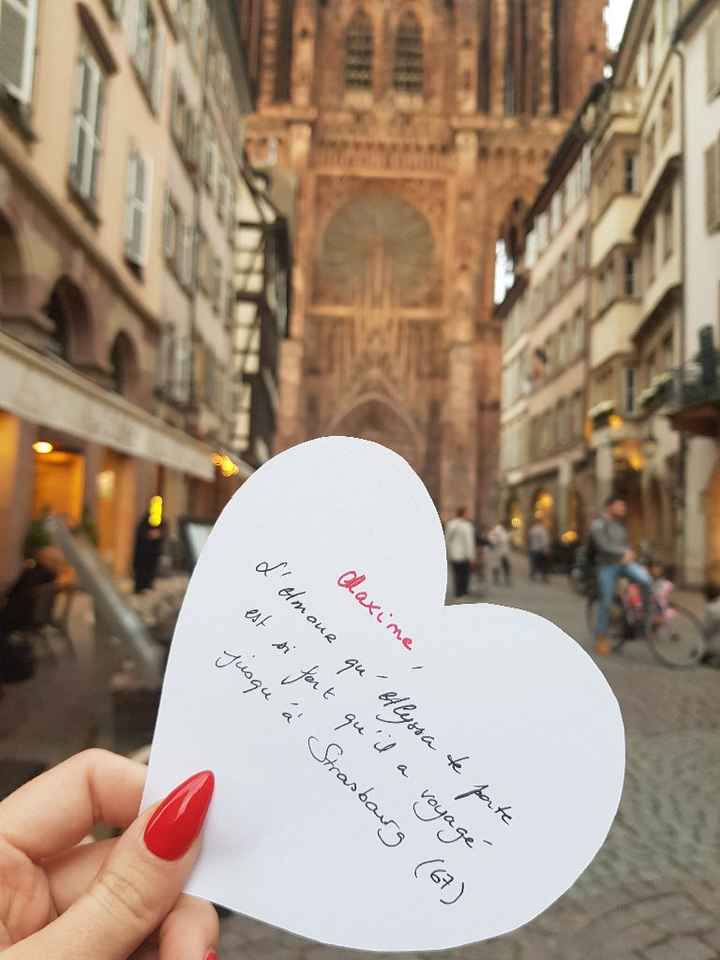 Maxime
L'Amour qu'Alyssa te porte
est si fort qu'il a voyagé
jusqu'à Strasbourg (67)